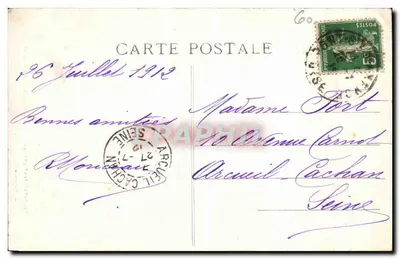 CARTE POSTALE
26 Juillet 1912
Bonnes amitiés
Madame Fort
10 Avenue Carnot
Arcueil-Cachan
Seine
ARCUEIL-CACHAN
27-7
12
SEINE
POSTES
5